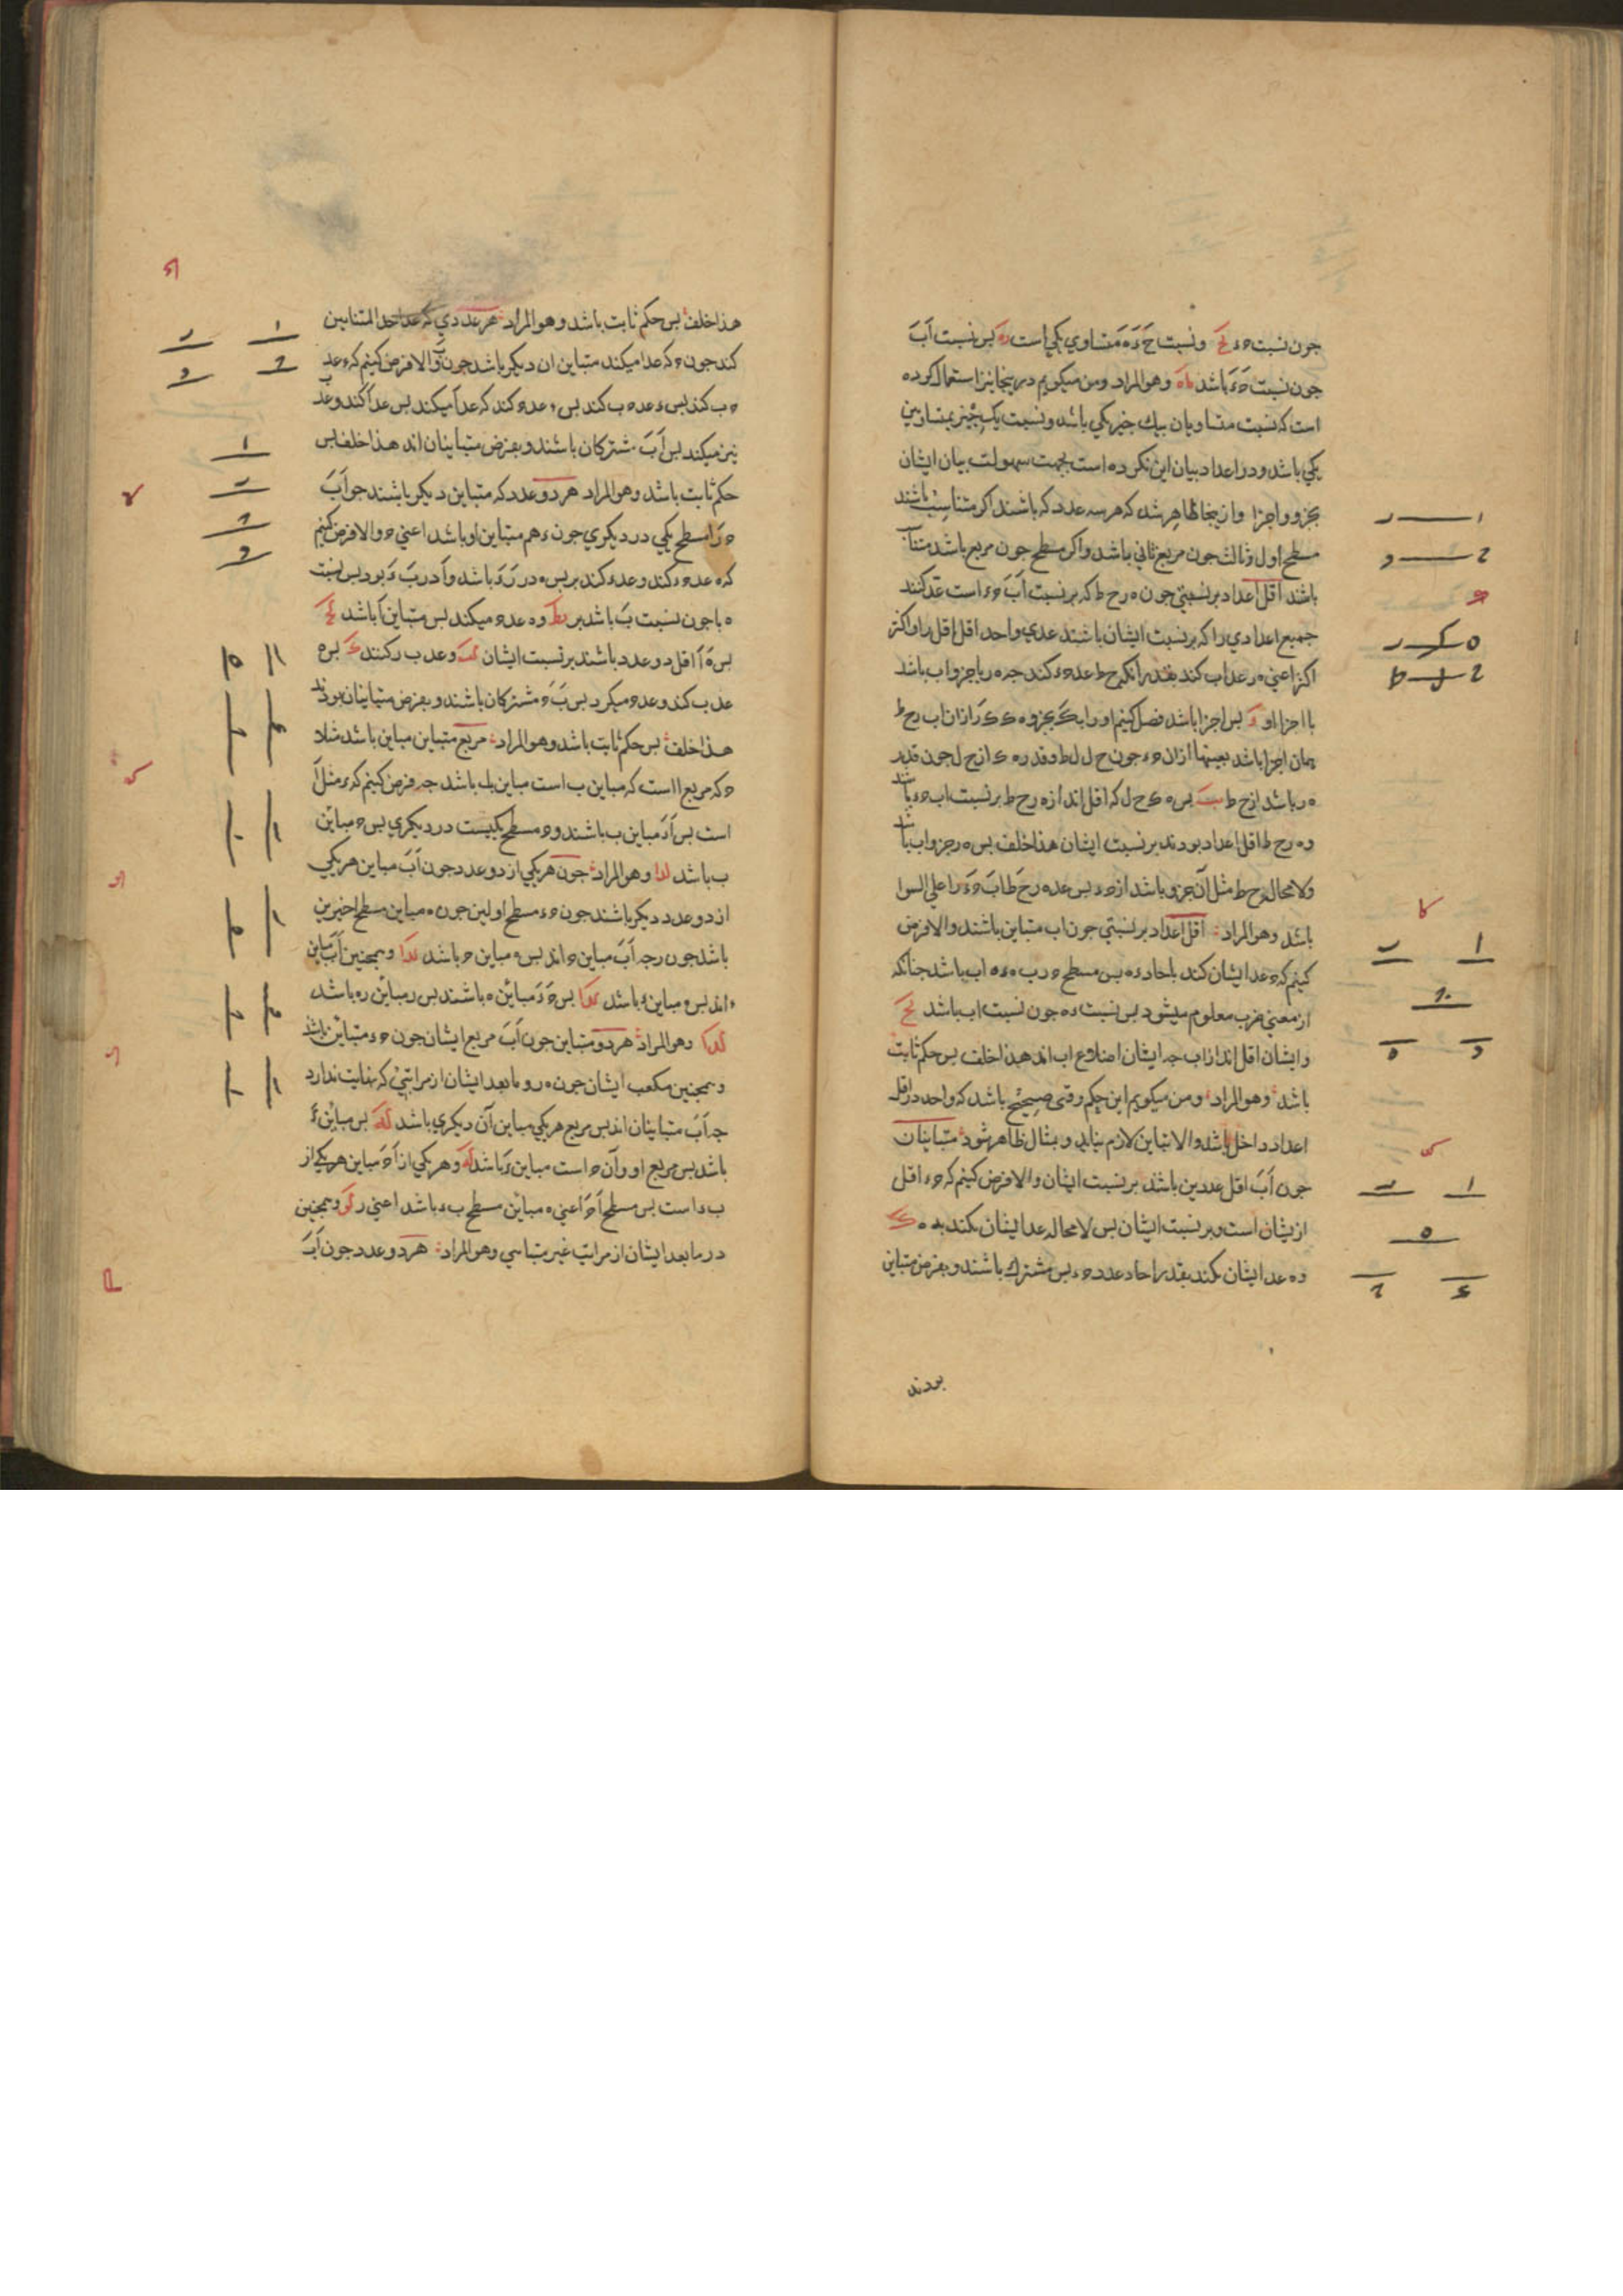 جون نسبت حء ونسبت یکی است بس نسبت اَبَ
جون نسبت باشد وهو المراد ومن میکویم درینجا نیز استعمال کرده
است که نسبت متساویان بیك جیز یکی باشد ونسبت یك جیز بمتساویین
یکی باشد ودر اعداد بیان این نکرده است بجهت سهولت بیان ایشان
بجزو واجزا وازینجا ظاهر شد که هر سه عدد که باشند اکر متناسب باشند
مسطح اول وثالث جون مربع ثانی باشد واکر مسطح جون مربع باشد
باشد اقل اعداد بر نسبتی جون ه ر ح ط که بر نسبت اَبَ حء است عد کنند
جمیع اعدادی را که بر نسبت ایشان باشند عدی واحد اقل اقل را واکثر
اکثر اعنی ه ر عد اب کند بقدر انکه ح ط عد حء کند جه ه ر یا جزو اب باشد
یا اجزاء او بس اجزا باشد فصل کنیم اورا
همان اجزا باشد بعینها ازان حء جون ح ل ل ط وقدر ه ک از ح ل جون قدر
ه ر باشد از ح ط بس ه ک ح ل که اقل اند از ه ر ح ط بر نسبت اب حء باشد
وه ر ح ط اقل اعداد بودند بر نسبت ایشان هذا خلف بس ه ر جزو اب باشد
ولا محاله ح ط مثل آن جزو باشد از حء بس عد ه ر ح ط اب حء را علی السوا
باشد وهو المراد اقل اعداد بر نسبتی جون اب متباین باشند والا فرض
کنیم که ح عد ایشان کند باحاد ءه بس مسطح ح در ءه اب باشد جنانکه
از معنی ضرب معلوم میشود بس نسبت ءه جون نسبت اب باشد
وایشان اقل اند از اب جه ایشان اضلاع اب اند هذا خلف بس حکم ثابت
باشد وهو المراد ومن میکویم این حکم وقتی صحیح باشد که واحد در اقل
اعداد داخل باشد والا تباین لازم نیاید وبمثال ظاهر شود متباینان
جون اَبَ اقل عددین باشد بر نسبت ایشان والا فرض کنیم که حء اقل
ازیشان است وبر نسبت ایشان بس لا محاله عد ایشان بکند به ه
وه عد ایشان بکند بقدر احاد عدد حء بس مشترك باشند وبفرض متباین
بودند
هذا خلف بس حکم ثابت باشد وهو المراد هر عددی که عد احد المتباینین
کند جون ح که عد ا میکند متباین ان دیکر باشد جون ب والا فرض کنیم که ء عد
ح ب کند بس ء عد ح ب کند بس ء عد ح کند که عد اَ میکند بس عد اَ کند وعد ب
نیز میکند بس اَبَ مشترکان باشند وبفرض متباینان اند هذا خلف بس
حکم ثابت باشد وهو المراد هر دو عدد که متباین دیکر باشند جون اَبَ
ح را مسطح یکی در دیکری جون ء هم متباین او باشد اعنی ح والا فرض کنیم
که ه عد ح ء کند وعد ء کند بر بس ه در ر ء باشد واَ در بَ ء بود بس نسبت
ه با جون نسبت ب باشد بر وه عد ح میکند بس متباین اَ باشد
بس ه اَ اقل دو عدد باشند بر نسبت ایشان وعد ب ر کنند بس ه
عد ب کند وعد ح میکرد بس بَ حَ مشترکان باشند وبفرض متباینان بودند
هذا خلف بس حکم ثابت باشد وهو المراد مربع متباین مباین باشد مثلا
ح که مربع ا است که مباین ب است مباین ب باشد جه فرض کنیم که ء مثل اَ
است بس اَ ءَ مباین ب باشند وح مسطح یکیست در دیکری بس ح مباین
ب باشد وهو المراد جون هر یکی از دو عدد جون اَبَ مباین هر یکی
از دو عدد دیکر باشند جون حء مسطح اولین جون ه مباین مسطح اخیرین
باشد جون ر جه اَبَ مباین ح اند بس ه مباین ح باشد وهمجنین اَبَ مباین
ء اند بس ه مباین ء باشد بس حَ ءَ مباین ه باشند بس ر مباین ه باشد
وهو المراد هر دو متباین جون اَبَ مربع ایشان جون حء متباین باشد
وهمجنین مکعب ایشان جون ه ر وما بعد ایشان از مراتبی که نهایت ندارد
جه اَبَ متباینان اند بس مربع هر یکی مباین آن دیکری باشد بس مباین ءَ
باشد بس مربع او وآن ح است مباین ءَ باشد وهر یکی از اَ حَ مباین هر یکی از
ب ء است بس مسطح اَ حَ اعنی ه مباین مسطح ب ء باشد اعنی ر وهمجنین
در ما بعد ایشان از مراتب غیر متناهی وهو المراد هر دو عدد جون اَبَ